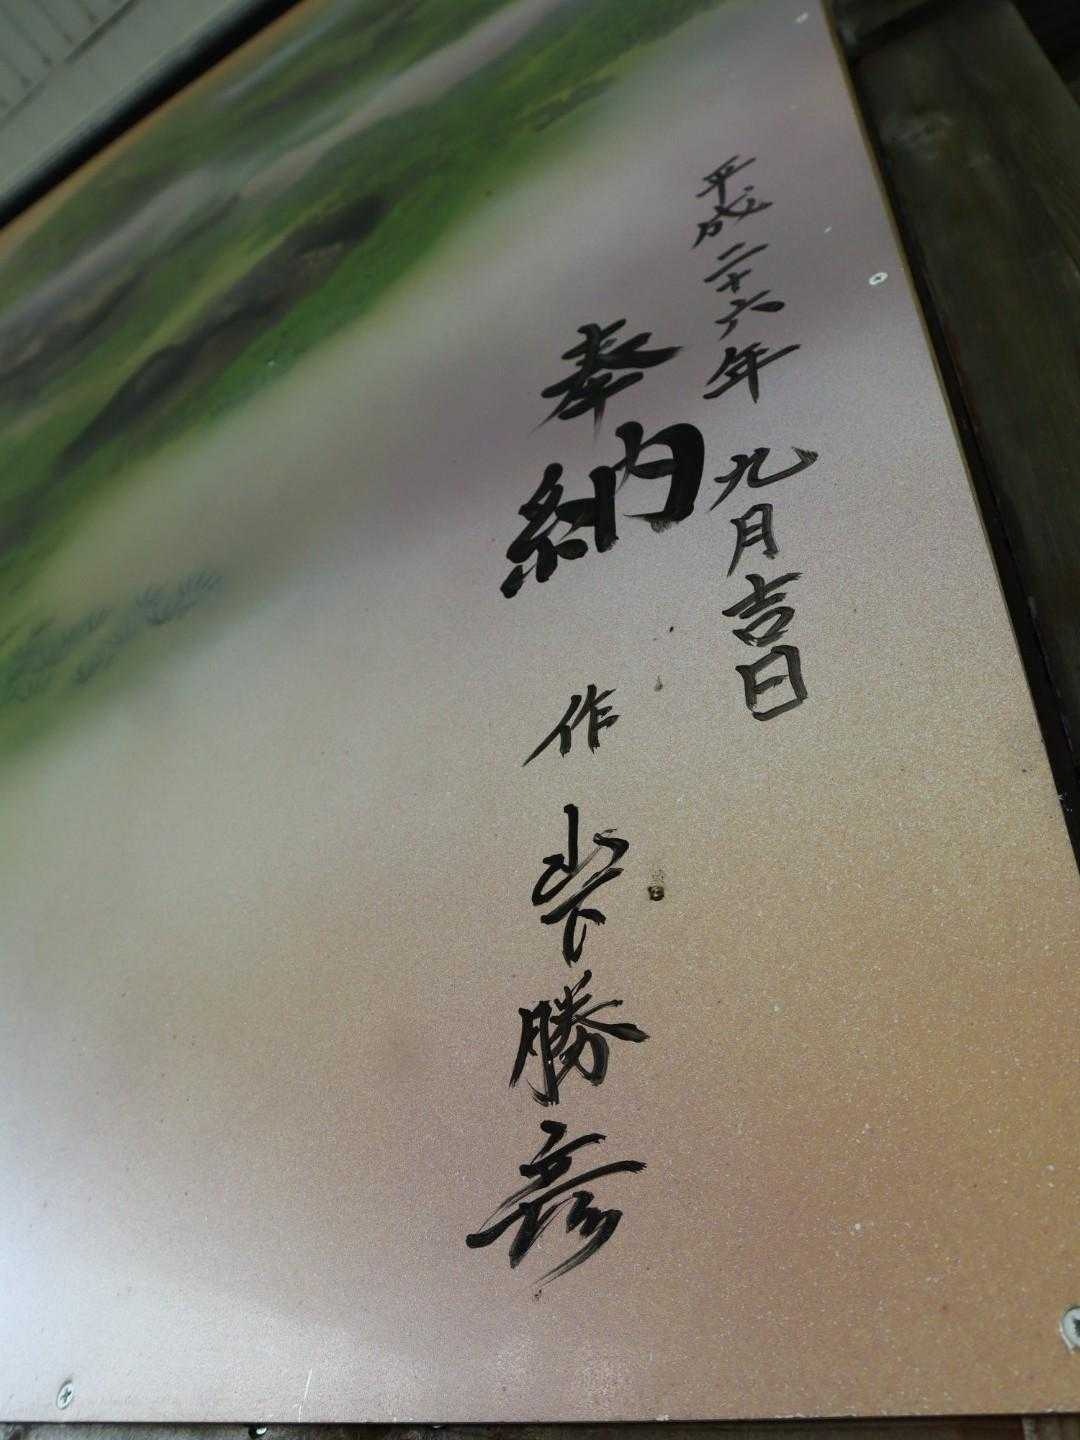 平成二十六年 九月吉日
奉納 作 山下勝彦